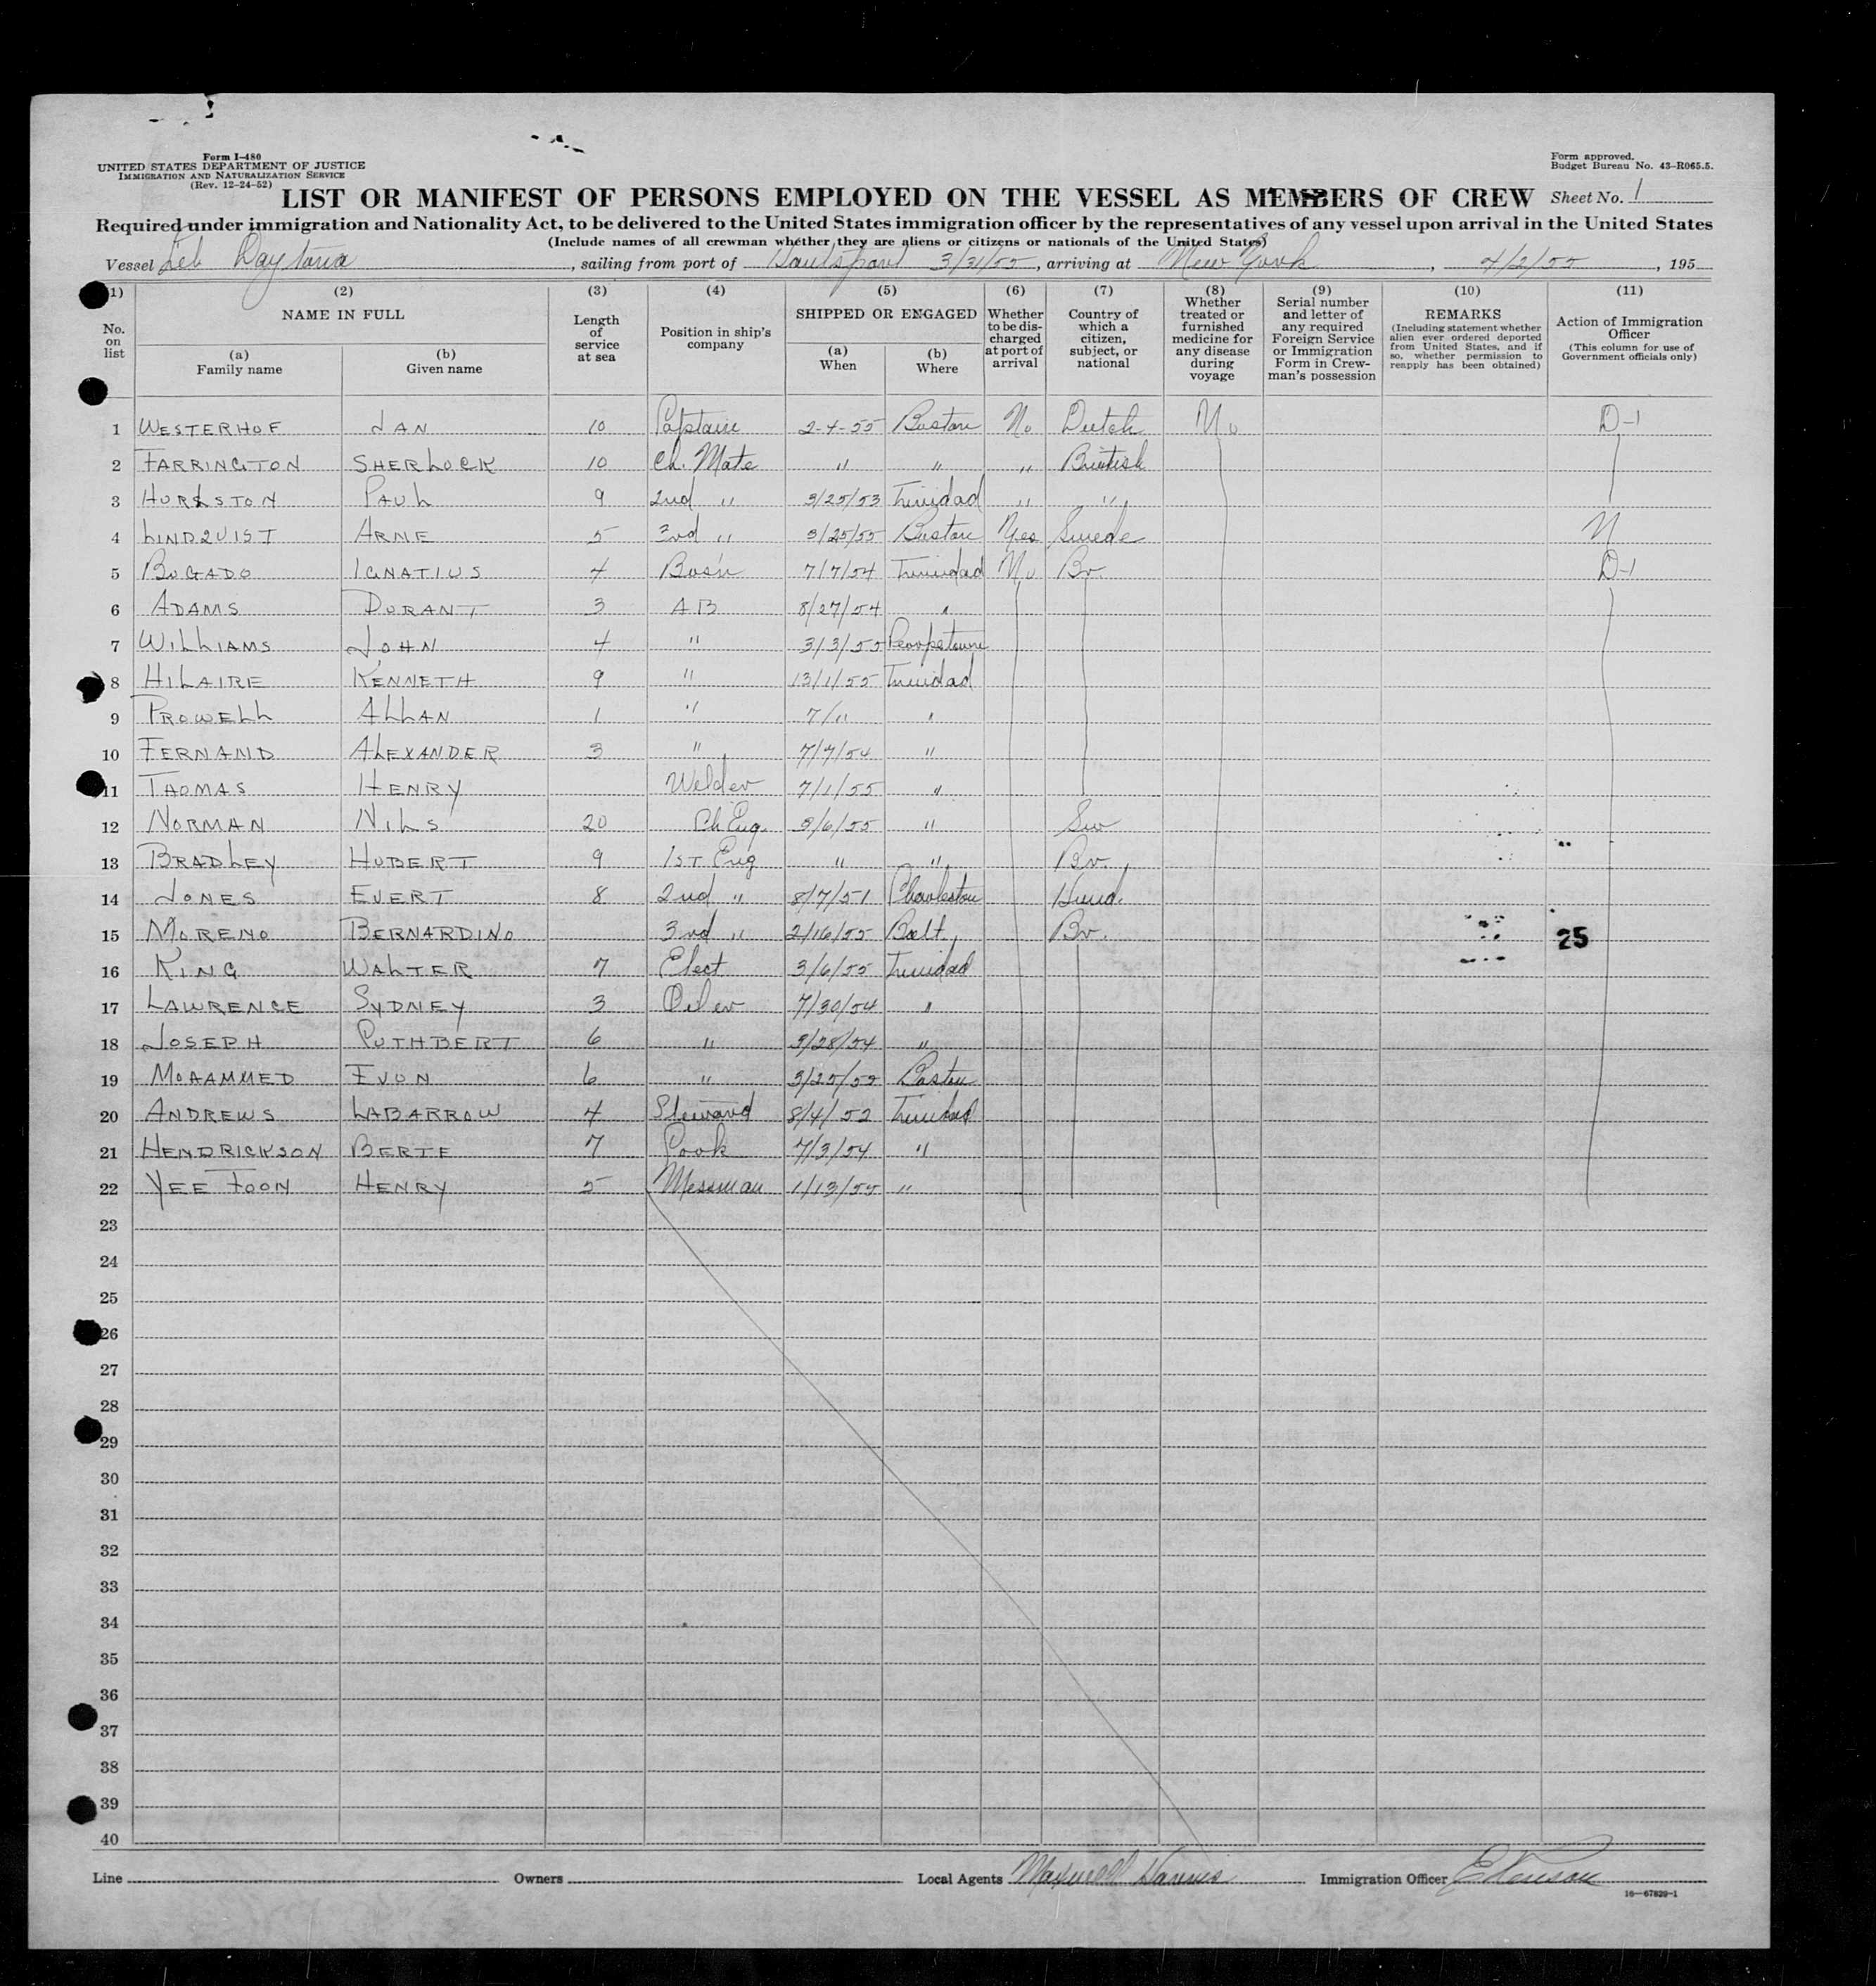 Form I-480
UNITED STATES DEPARTMENT OF JUSTICE
IMMIGRATION AND NATURALIZATION SERVICE
(Rev. 12-24-52)
Form approved.
Budget Bureau No. 43-R065.5.
LIST OR MANIFEST OF PERSONS EMPLOYED ON THE VESSEL AS MEMBERS OF CREW Sheet No. 1
Required under immigration and Nationality Act, to be delivered to the United States immigration officer by the representatives of any vessel upon arrival in the United States
(Include names of all crewman whether they are aliens or citizens or nationals of the United States)
Vessel Daytona, sailing from port of Hantsport 3/31/55, arriving at New York, 4/2/55, 195
(1) (2) (3) (4) (5) (6) (7) (8) (9) (10) (11)
No. on list
NAME IN FULL
(a) Family name
(b) Given name
Length of service at sea
Position in ship's company
SHIPPED OR ENGAGED
(a) When
(b) Where
Whether to be discharged at port of arrival
Country of which a citizen, subject, or national
Whether treated or furnished medicine for any disease during voyage
Serial number and letter of any required Foreign Service or Immigration Form in Crewman's possession
REMARKS
(Including statement whether alien ever ordered deported from United States, and if so, whether permission to reapply has been obtained)
Action of Immigration Officer
(This column for use of Government officials only)
1 WESTERHOF JAN 10 Captain 2-4-55 Boston No Dutch No D-1
2 FARRINGTON SHERLOCK 10 Ch. Mate " " " British
3 HURLSTON PAUL 9 2nd " 3/25/53 Trinidad " "
4 LINDQUIST ARNE 5 3rd " 3/25/55 Boston Yes Swede N
5 BOGADO IGNATIUS 4 Bos'n 7/7/54 Trinidad No Br. D-1
6 ADAMS DURANT 3 AB 8/27/54 "
7 WILLIAMS JOHN 4 " 3/3/55
8 HILAIRE KENNETH 9 " 13/1/55 Trinidad
9 PROWELL ALLAN 1 " 7/11 "
10 FERNAND ALEXANDER 3 " 7/7/54 "
11 THOMAS HENRY Welder 7/1/55 "
12 NORMAN NILS 20 Ch Eng. 3/6/55 " Sw
13 BRADLEY HUBERT 9 1ST Eng " " Br.
14 JONES EVERT 8 2nd " 8/7/51 Charleston Hond.
15 MORENO BERNARDINO 3rd " 2/16/55 Balt. Br. 25
16 KING WALTER 7 Elect 3/6/55 Trinidad
17 LAWRENCE SYDNEY 3 Oiler 7/30/54 "
18 JOSEPH CUTHBERT 6 " 3/28/54 "
19 MOHAMMED EVON 6 " 3/25/55 Boston
20 ANDREWS LABARROW 4 Steward 8/4/52 Trinidad
21 HENDRICKSON BERTE 7 Cook 7/3/54 "
22 YEE FOON HENRY 5 Messman 1/13/55 "
23
24
25
26
27
28
29
30
31
32
33
34
35
36
37
38
39
40
Line Owners Local Agents Maxwell Harris Immigration Officer
16—67829-1